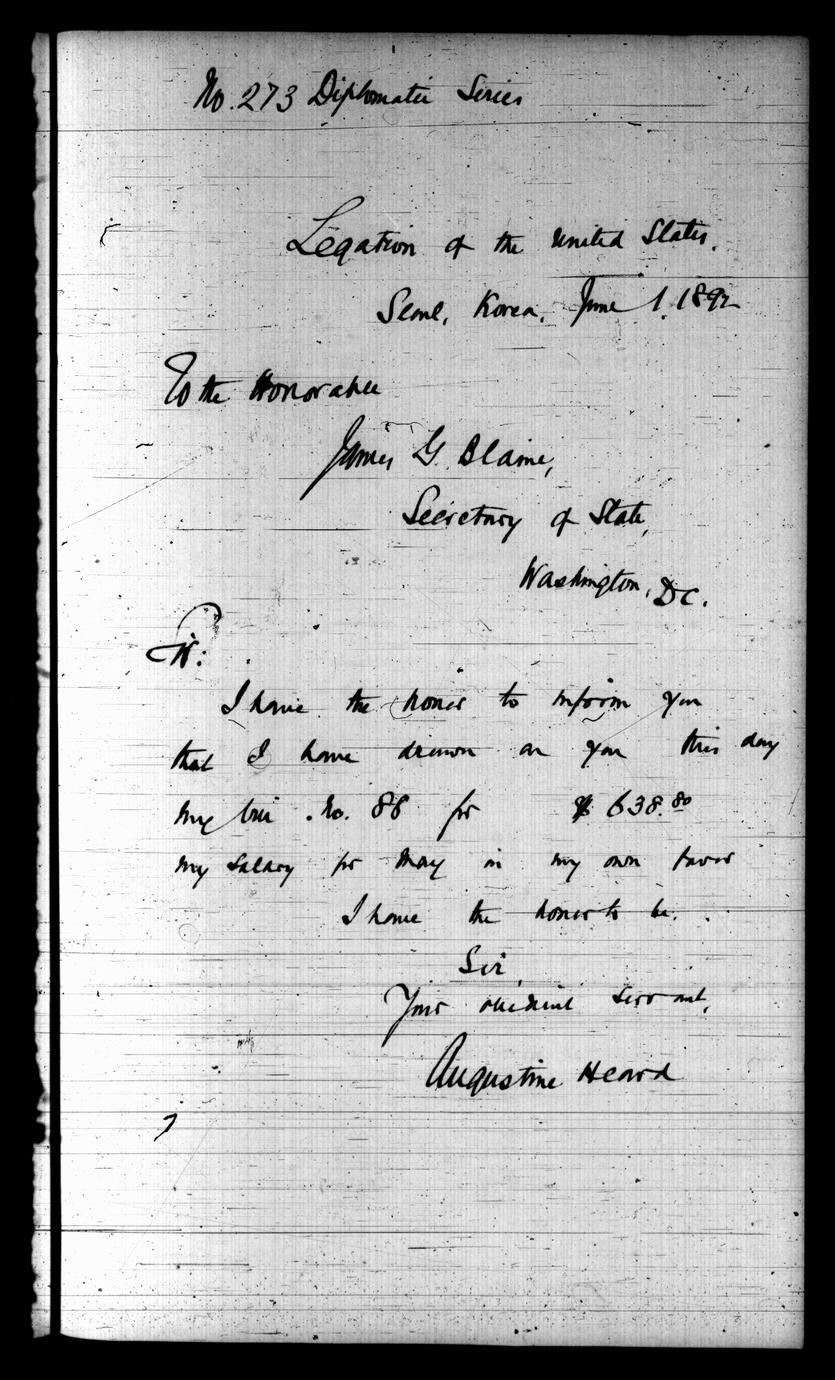 No. 273 Diplomatic Series
Legation of the United States.
Seoul, Korea, June 1, 1892
To the Honorable
James G. Blaine,
Secretary of State,
Washington, DC.
Sir:
I have the honor to inform you
that I have drawn on you this day
my bill No. 86 for $638.80
my salary for May in my own favor
I have the honor to be.
Sir,
Your obedient servant,
Augustine Heard